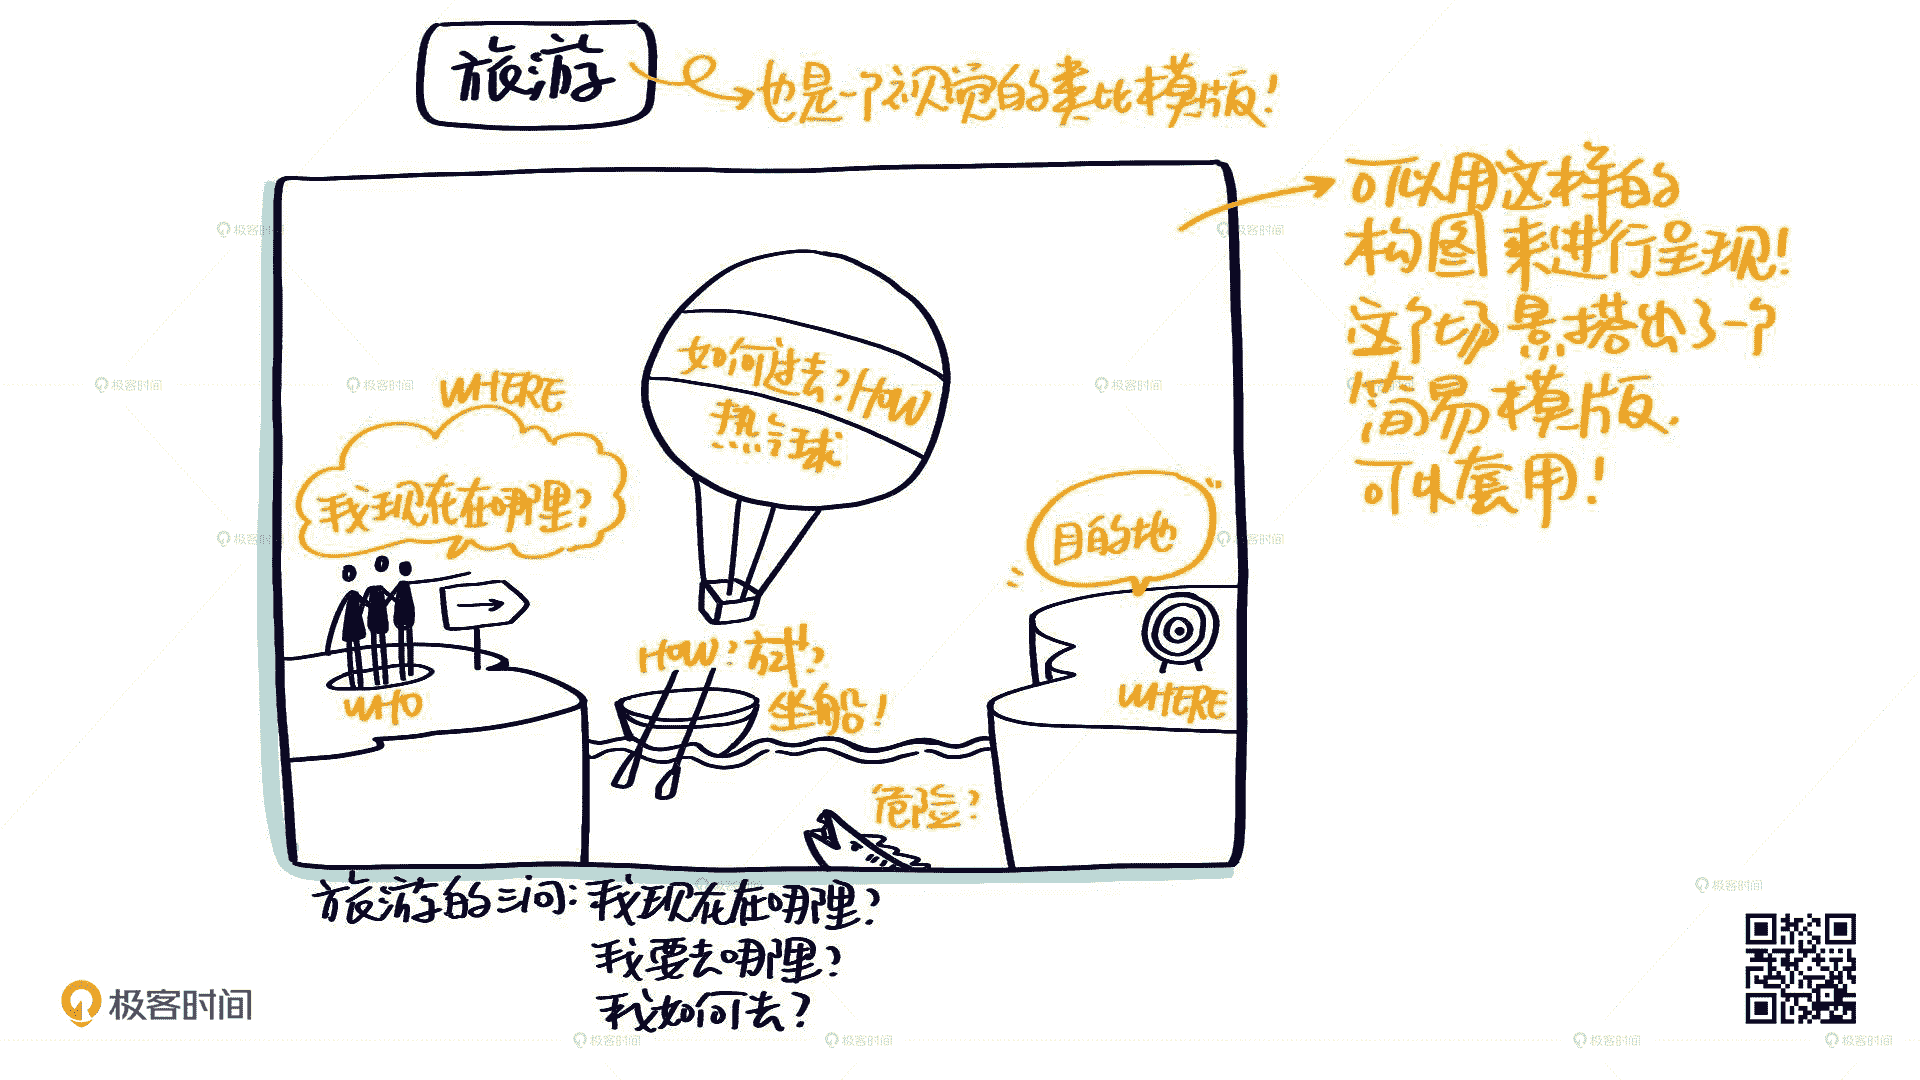 旅游
也是一个视觉的类比模版!
可以用这样的
构图来进行呈现!
这个场景搭出了一个
简易模版.
可以套用!
WHERE
我现在在哪里?
如何过去?/HOW
热气球
目的地
HOW?方式?
坐船!
WHO
WHERE
危险?
旅游的三问:我现在在哪里?
我要去哪里?
我如何去?
极客时间